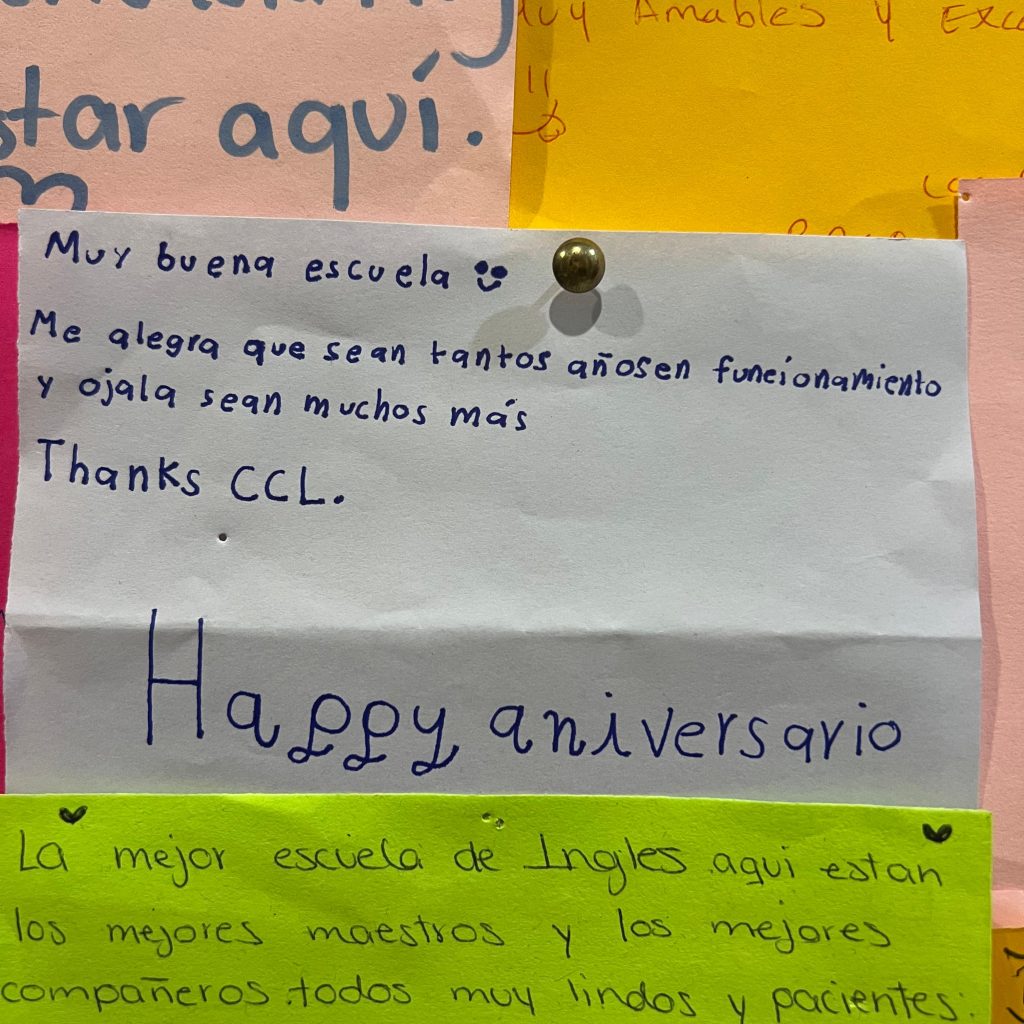 star aquí.
Muy Amables y
Muy buena escuela
Me alegra que sean tantos años en funcionamiento
y ojala sean muchos más
Thanks CCL.
Happy aniversario
La mejor escuela de Ingles aqui estan
los mejores maestros y los mejores
compañeros. todos muy lindos y pacientes.